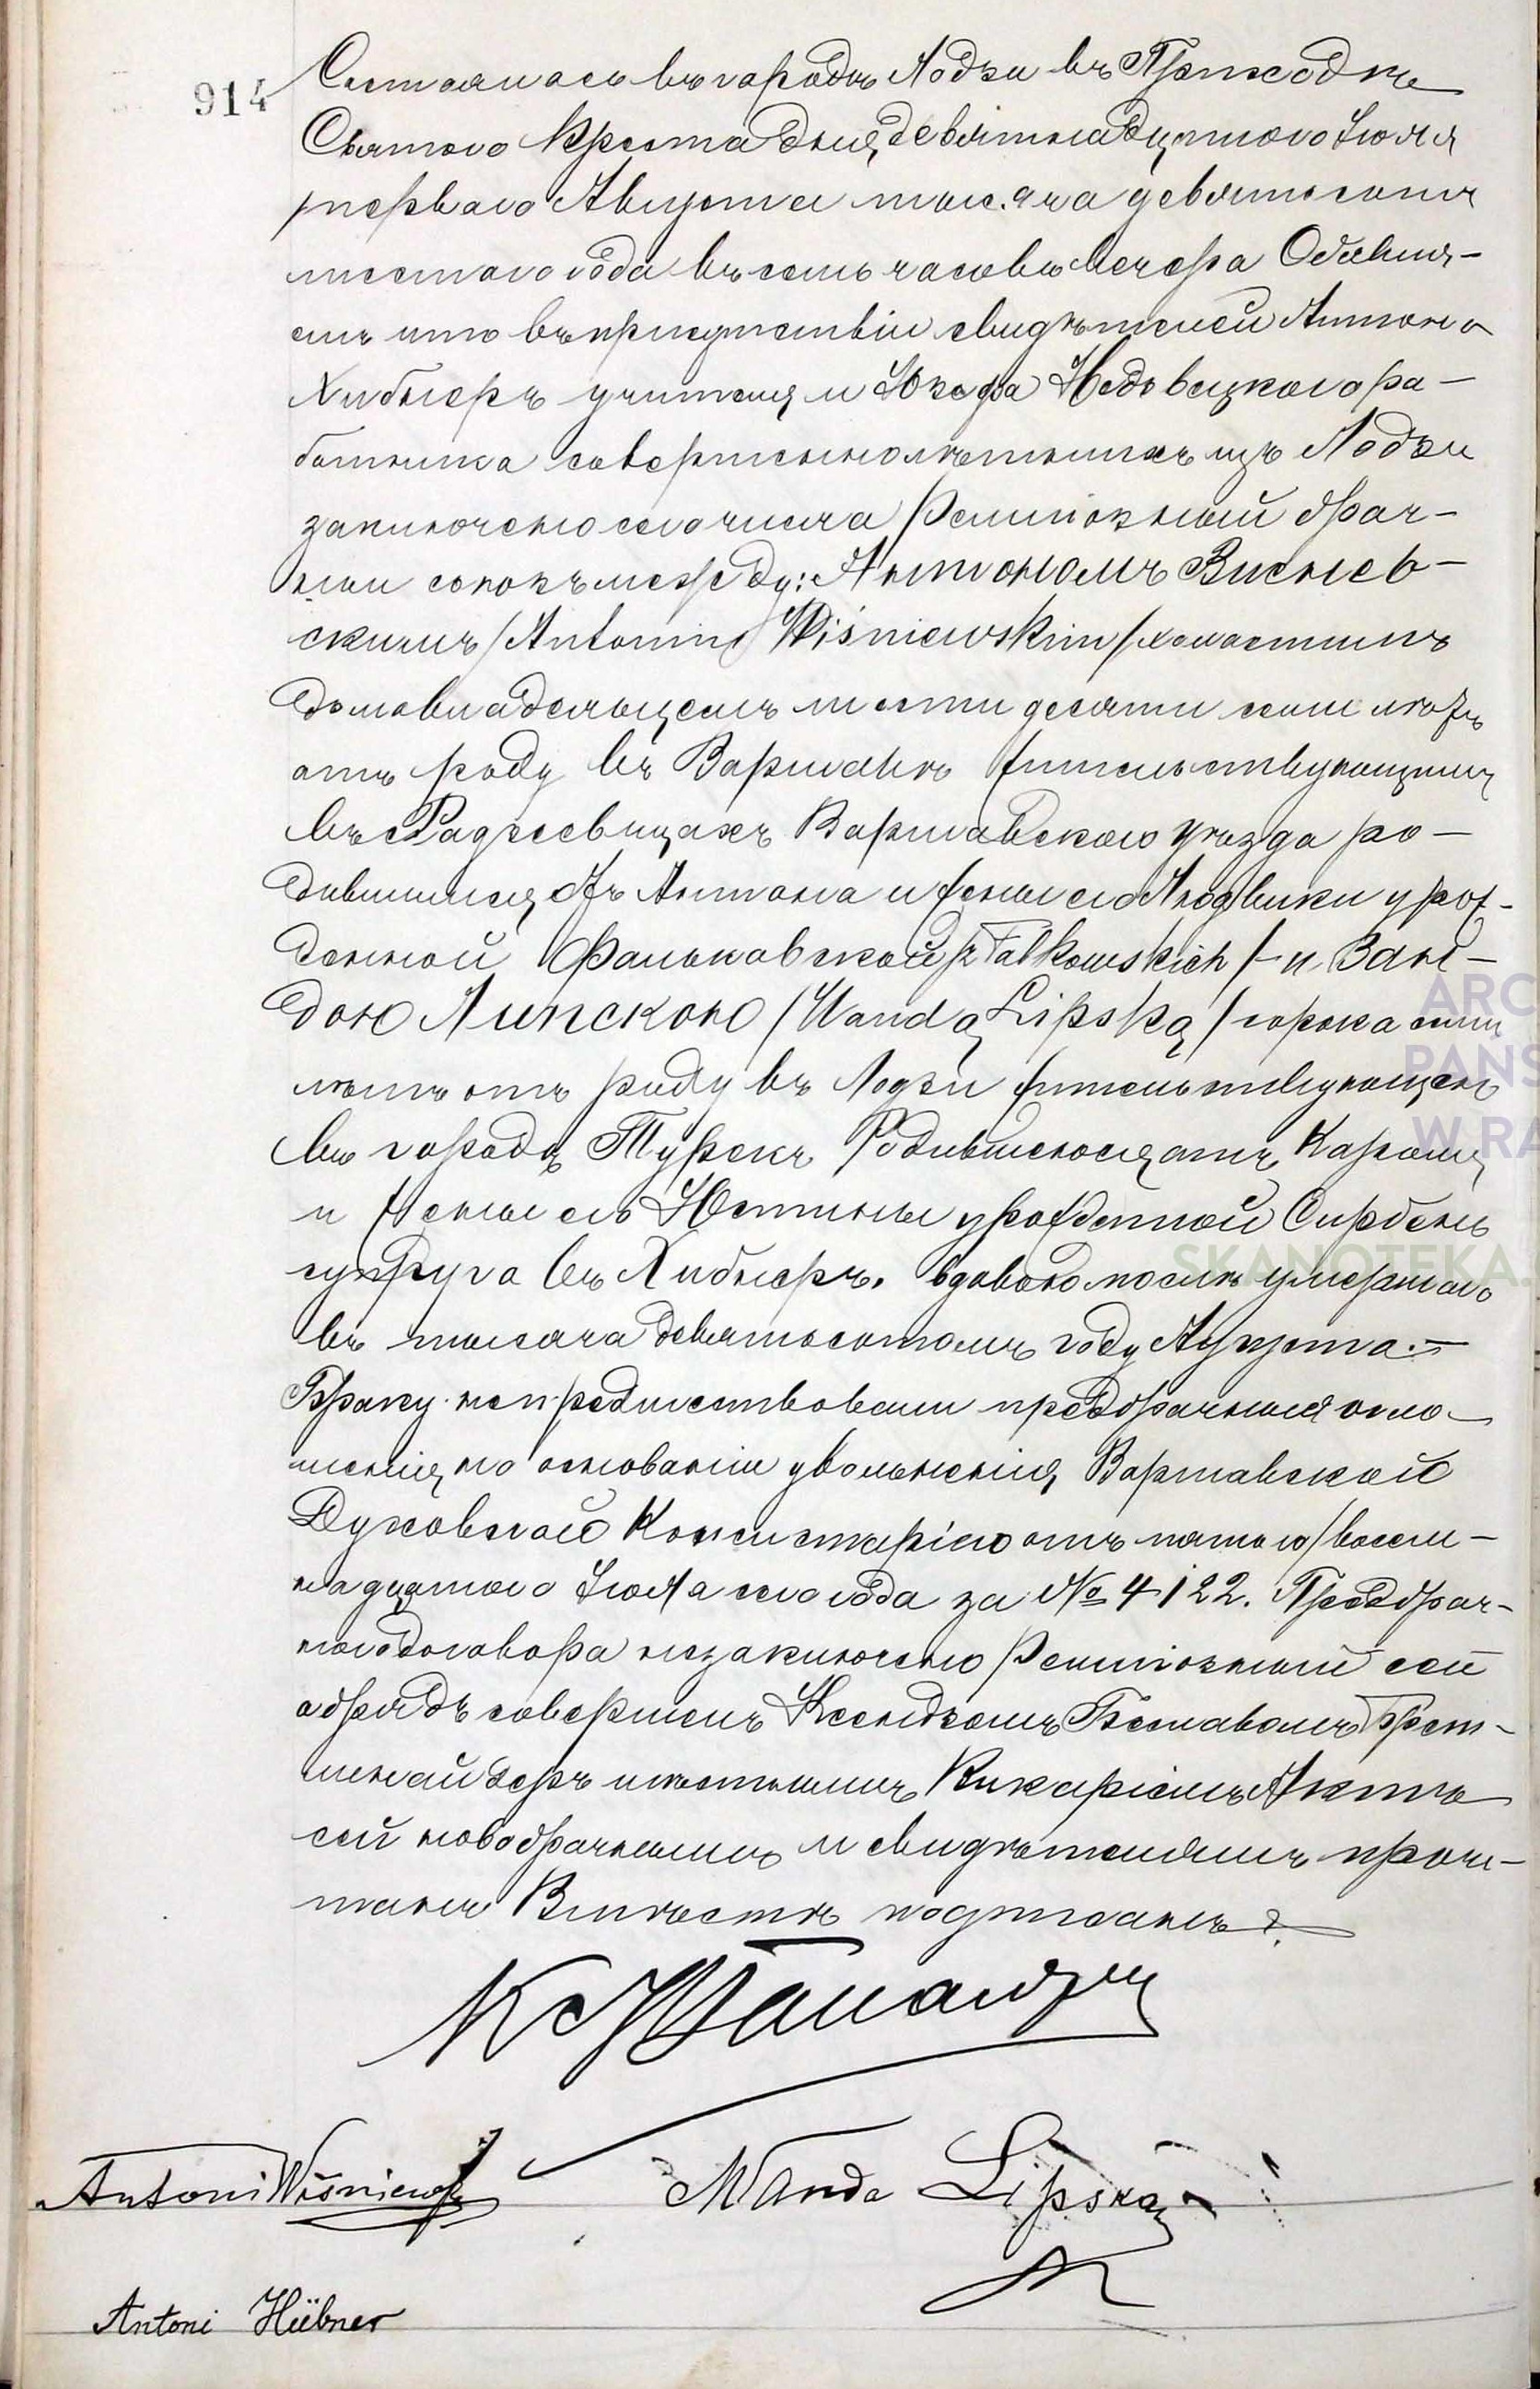 914 Состоялось въ городѣ Лодзи въ Приходѣ
Святого Креста дня девятнадцатого Іюля
перваго Августа тысяча девятьсотъ
шестого года въ семь часовъ вечера Объявля-
емъ что въ присутствіи свидѣтелей Антона
Хибнеръ учителя и Юзефа Недовецкого ра-
ботника совершеннолѣтнихъ изъ Лодзи
заключено сего числа Религіозный брач-
ный союзъ между: Антономъ Виснев-
скимъ /Antonim Wiśniewskim/ холостымъ
домовладельцемъ шестидесяти семи лѣтъ
отъ роду въ Варшавѣ жительствующимъ
въ Радзеевицахъ Варшавского уѣзда ро-
дившимся отъ Антона и жены его Людвики урож-
денной Фальковской /z Falkowskich/ - и Ванд-
дою Липскою /Wandą Lipską/ сорока семи
лѣтъ отъ роду въ Лодзи жительствующею
въ городѣ Турекъ Родившеюся отъ Кароля
и жены его Юстины урожденной
супруга въ Хибнеръ. вдовою послѣ умершаго
въ тысяча девятьсотомъ году Августа.-
Браку не предшествовали предбрачныя огло-
шенія на основаніи увольненія Варшавской
Духовной Консисторіею отъ пятого/восем-
надцатого Іюля сего года за № 4122. Предбрач-
ного договора незаключено Религіозный сей
обрядъ совершенъ Ксендзомъ
шнайдеръ мѣстнымъ Викаріемъ Актъ
сей новобрачнымъ и свидѣтелямъ прочи-
танъ Вмѣстѣ подписанъ.
Antoni Wiśniewski Wanda Lipska
Antoni Hübner
ARC
PAŃS
W RA
SKANOTEKA.